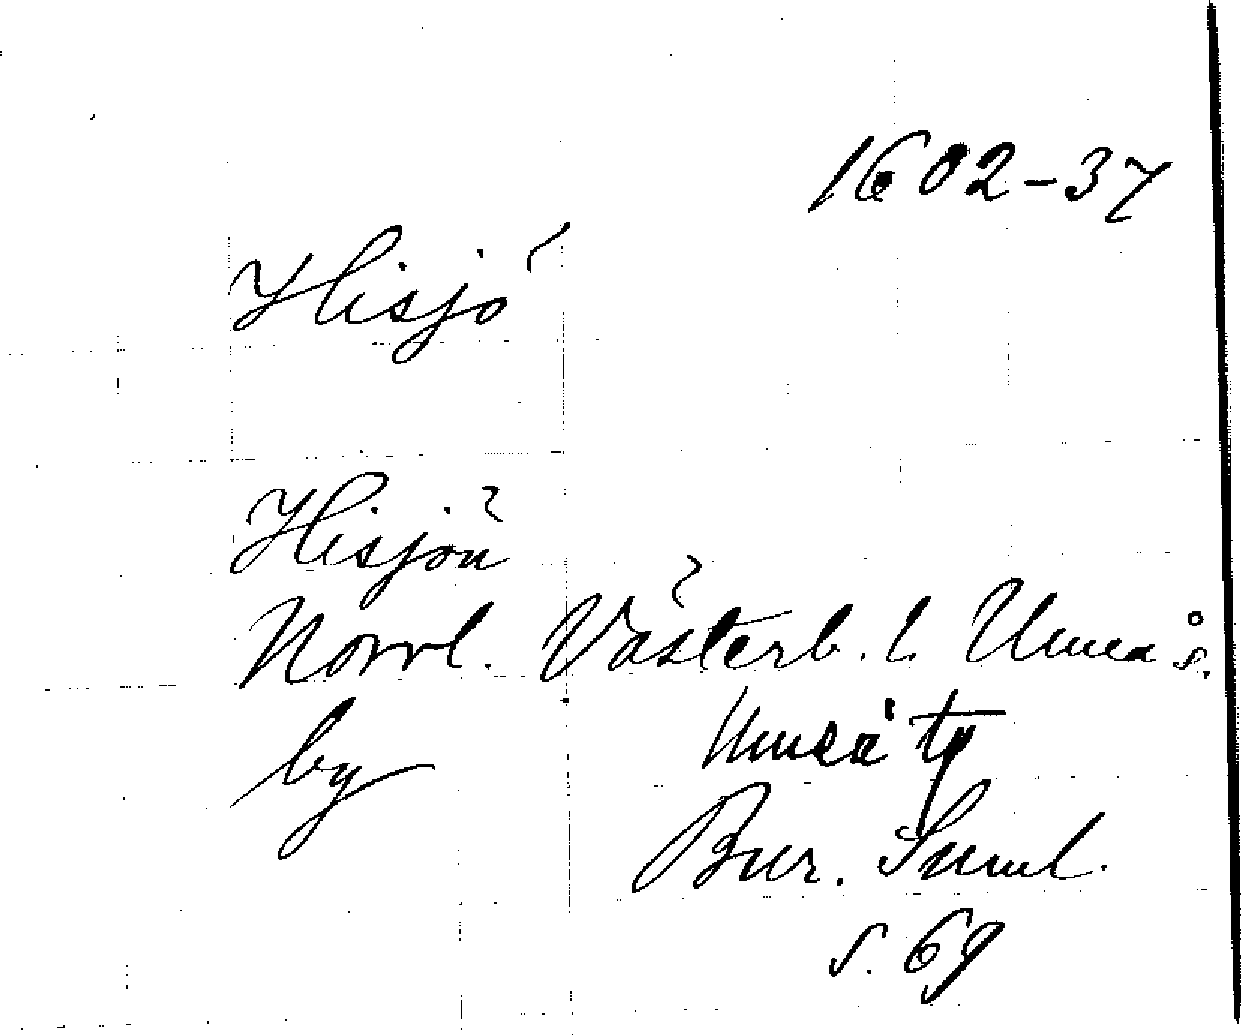 1602-37
Hisjö
Hisjön
Norrl. Västerb. l. Umeå s.
by Umeå tg
Bur. Saml.
s. 69